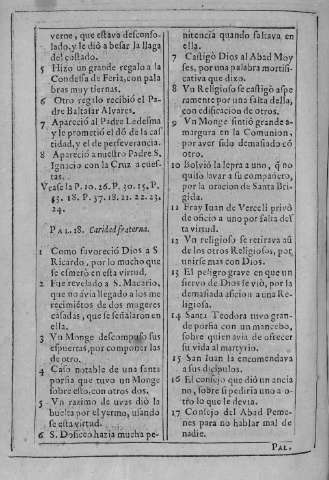 verne, que estava desconso-
lado, y le diò a besar la llaga
del costado.
5 Hizo un grande regalo a la
Condessa de Feria, con pala
bras muy tiernas.
6 Otro regalo recibiò el Pa-
dre Baltasar Alvares.
7 Apareciò al Padre Ledesma
y le prometiò el dõ de la cas
tidad, y el de perseverancia.
8 Apareciò a nuestro Padre S.
Ignacio con la Cruz a cues-
tas.
Vease la P. 10. 26. P. 30. 15. P.
53. 18. P. 37. 18. 21. 22. 23.
24.
PAL. 18. Caridad fraterna.
1 Como favoreciò Dios a S
Ricardo, por lo mucho que
se esmerò en esta virtud.
2 Fue revelado a S. Macario,
que no avia llegado a los me
recimiẽtos de dos mugeres
casadas, que se señalaron en
ella.
3 Vn Monge descompuso sus
espuertas, por componer las
de otro.
4 Caso notable de una santa
porfia que tuvo un Monge
sobre esto, con otros dos.
5 Vn razimo de uvas diò la
buelta por el yermo, usando
se esta virtud.
6 S. Dositeo hazia mucha pe-
nitencia quando faltava en
ella.
7 Castigò Dios al Abad Moy
ses, por una palabra mortifi-
cativa que dixo.
8 Vn Religioso se castigò aspe
ramente por una falta della,
con edificacion de otros.
9 Vn Monge sintiò grande a-
margura en la Comunion,
por aver sido demasiado cõ
otro.
10 Bolviò la lepra a uno, q̃ no
quiso lavar a su compañero,
por la oracion de Santa Bri-
gida.
11 Fray Iuan de Verceli privò
de oficio a uno por falta desf
ta virtud.
12 Vn religioso se retirava aũ
de los otros Religiosos, por
unirse mas con Dios.
13 El peligro grave en que un
siervo de Dios se viò, por la
demasiada aficion a una Re-
ligiosa.
14 Santa Teodora tuvo gran-
de porfia con un mancebo,
sobre quien avia de ofrecer
su vida al martyrio.
15 San Iuan la encomendava
a sus discipulos.
16 El consejo que diò un ancia
no, sobre si pediria uno a o-
tro lo que le devia.
17 Consejo del Abad Peme-
nes para no hablar mal de
nadie.
PAL.